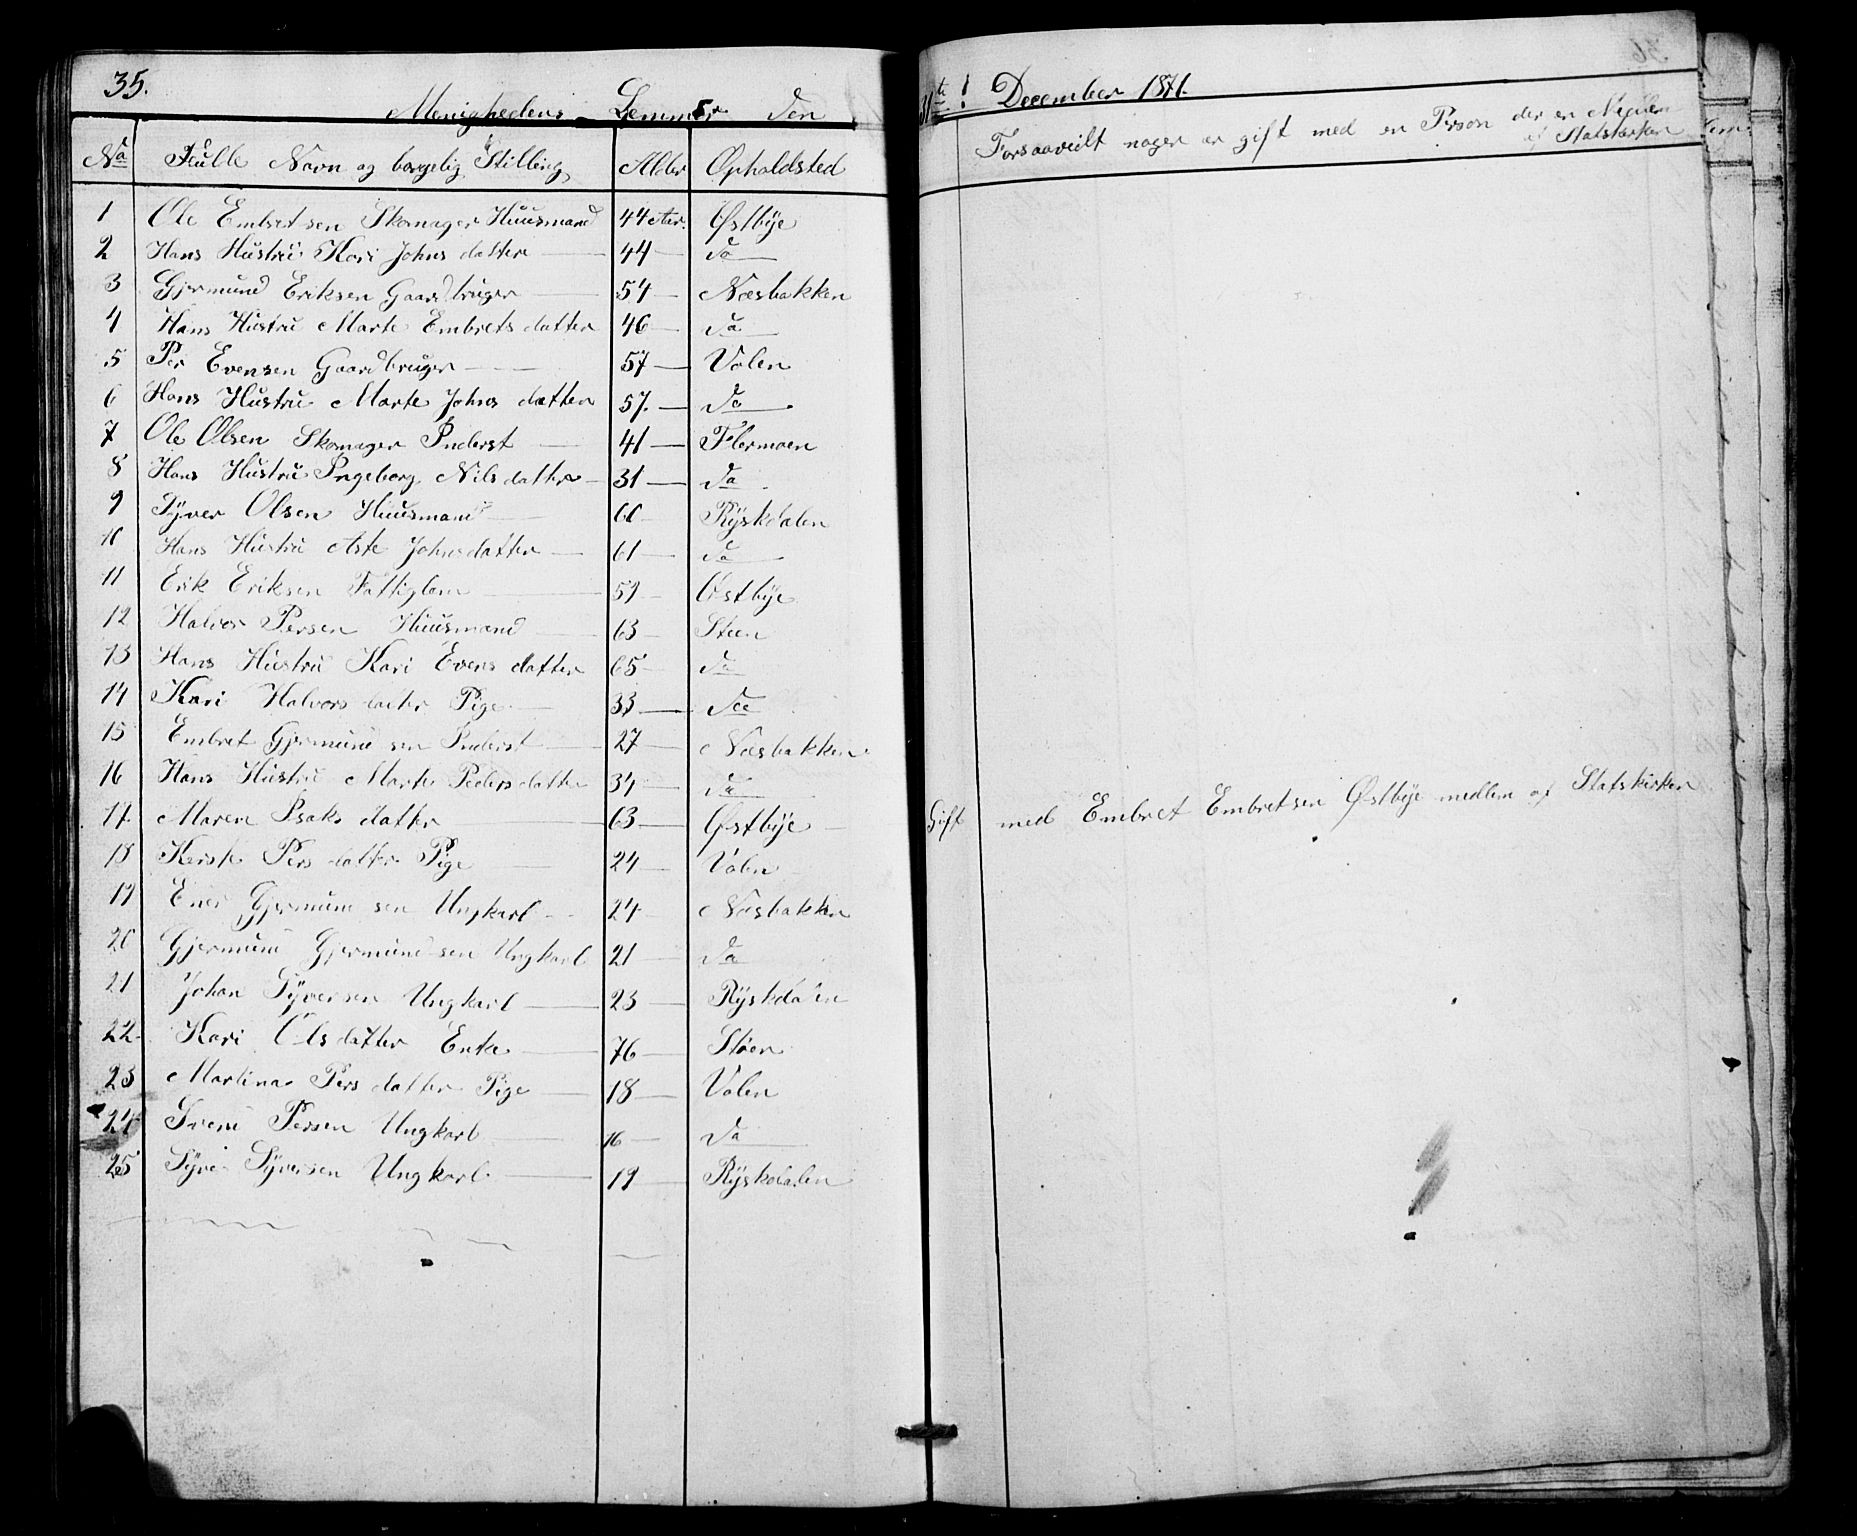 35.
Menighedens Lemmer den 31te December 1871.
No Fulle Navn og borgelig Stilling Alder Opholdsted Forsaavidt nogen er gift med en Person der er Medlem
af Statskirken
1 Ole Embretsen Skomager Huusmand 44 Aar. Østbye
2 Hans Hustru Kari Johns datter 44 Do
3 Gjermund Eriksen Gaardbruger 54 Næsbakken
4 Hans Hustru Marte Embrets datter 46 Do
5 Per Evensen Gaardbruger 57 Volen
6 Hans Hustru Marte Johns datter 57. Do
7 Ole Olsen Skomager Inderst 41 Flermoen
8 Hans Hustru Ingeborg Nilsdatter 31 Do
9 Syver Olsen Huusmand 61 Ryskdalen
10 Hans Hustru Aste Johnsdatter 61 Do
11 Erik Eriksen Fattiglem 59 Østbye
12 Halvor Persen Huusmand 63 Støen
13 Hans Hustru Kari Evens datter 65 Do
14 Kari Halvors datter Pige 33 Do
15 Embret Gjermund sen Inderst 27 Næsbakken
16 Hans Hustru Marte Peders datter 34 Do
17. Maren Isaks datter 63 Østbye Gift med Embret Embretsen Østbye medlem af Statskirken
18 Kersti Pers datter Pige 24 Volen
19 Gjermund sen Ungkarl 24 Næsbakken
20 Gjermund Gjermund sen Ungkarl 21 Do
21 Johan Syversen Ungkarl 23 Ryskdalen
22 Kari Olsdatter Enke 76 Støen
23 Martina Pers datter Pige 18 Volen
24 Persen Ungkarl 16 Do
25 Syver Syversen Ungkarl 19 Ryskdalen